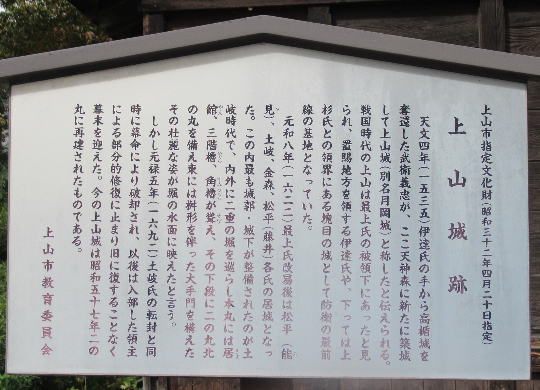 上山市指定文化財(昭和三十二年四月二十日指定)
上山城跡
天文四年(一五三五)伊達氏の手から高楯城を
奪還した武衛義忠が、ここ天神森に新たに築城
して上山城(別名月岡城)と称したと伝えられる。
戦国時代の上山は最上氏の被領下にあったと見
られ、置賜地方を領する伊達氏や、下っては上
杉氏との領界にある境目の城として防衛の最前
線の基地となっていた。
元和八年(一六二二)最上氏改易後は松平(能
見)、土岐、金森、松平(藤井)各氏の居城となっ
た。この内最も城郭・城下が整備されたのが土
岐時代で、内外に二重の堀を巡らし本丸には居
館、三階櫓、角櫓が聳え、その下段に二の丸北
の丸を備え東には桝形を伴った大手門を構えた
その壮麗な姿が堀の水面に映えたと言う。
しかし元禄五年(一六九二)土岐氏の転封と同
時に幕命により破却され、以後は入部した領主
による部分的修復に止まり旧に復することなく
幕末を迎えた。今の上山城は昭和五十七年二の
丸に再建されたものである。
上山市教育委員会